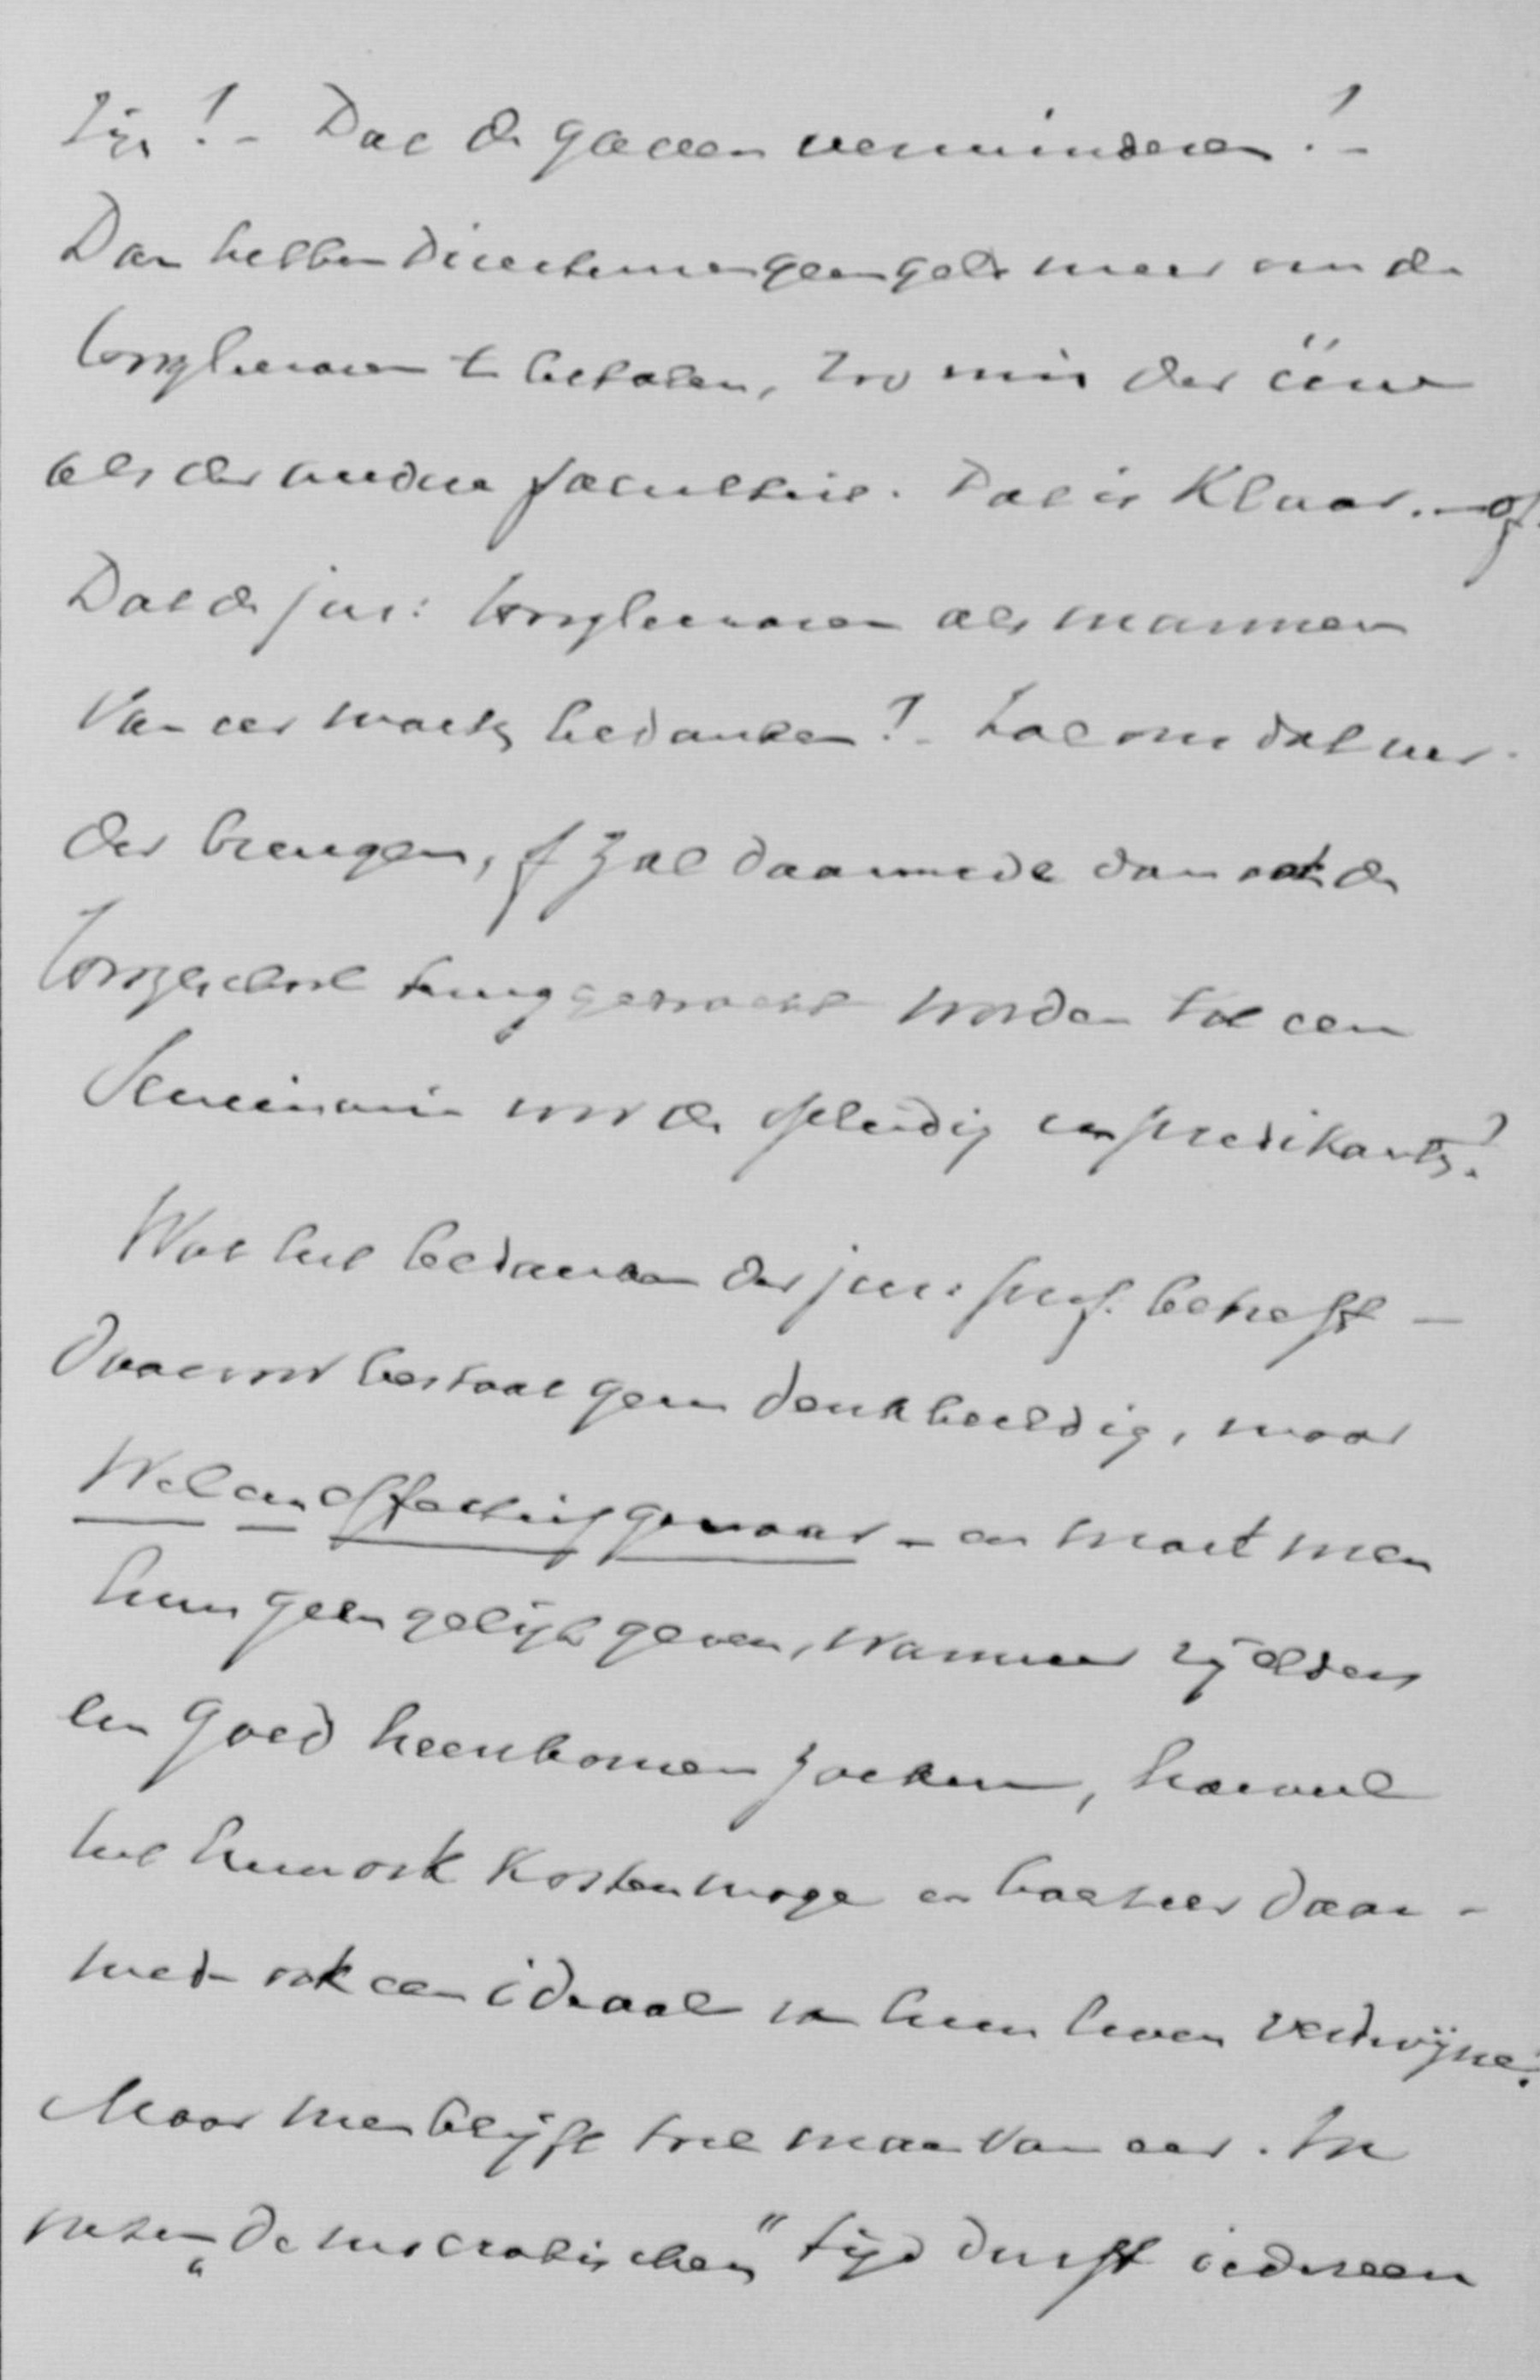 zijn! – Dat de gaven verminderen! –
Dan hebben Directeuren geen geld meer om de
hoogleeraren te betalen, zoo min der eene
als der andere faculteit. Dat is klaar. – of
Dat de jur: hoogleeraren als mannen
van eer moeten bedanken? – Zal ons dat ver-
der brengen, of zal daarmede dan ook de
Hoogeschool teruggebracht worden tot een
Seminarie voor de opleiding van predikanten?
Wat het bedanken der jur: prof. betreft –
daarvoor bestaat geen denkbeeldig, maar
wel een effectief gevaar – en moet men
hun geen gelijk geven, wanneer zij elders
een goed heenkomen zoeken, hoeveel
het hun ook kosten moge en hoezeer daar-
mede ook een ideaal van hun leven verdwijne?
Maar men blijft toch man van eer. In
onzen „democratischen" tijd durft iedereen